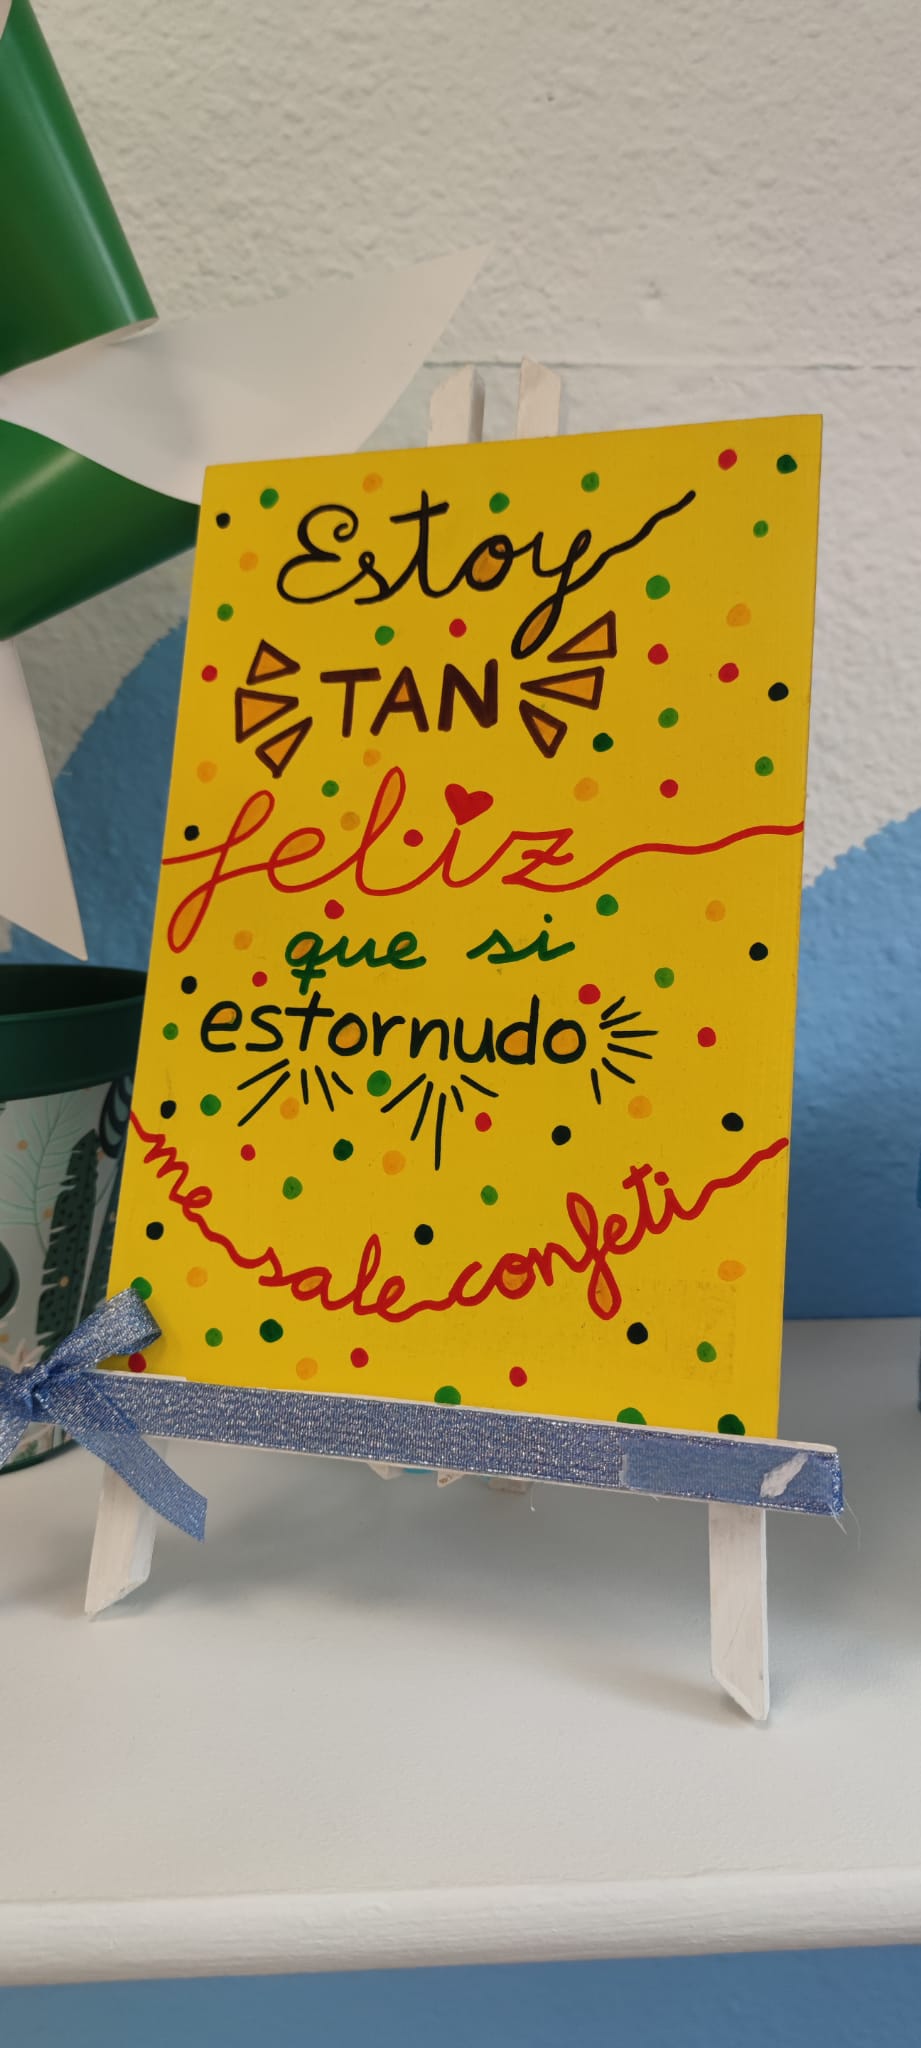 Estoy
TAN
feliz
que si
estornudo
me sale confeti